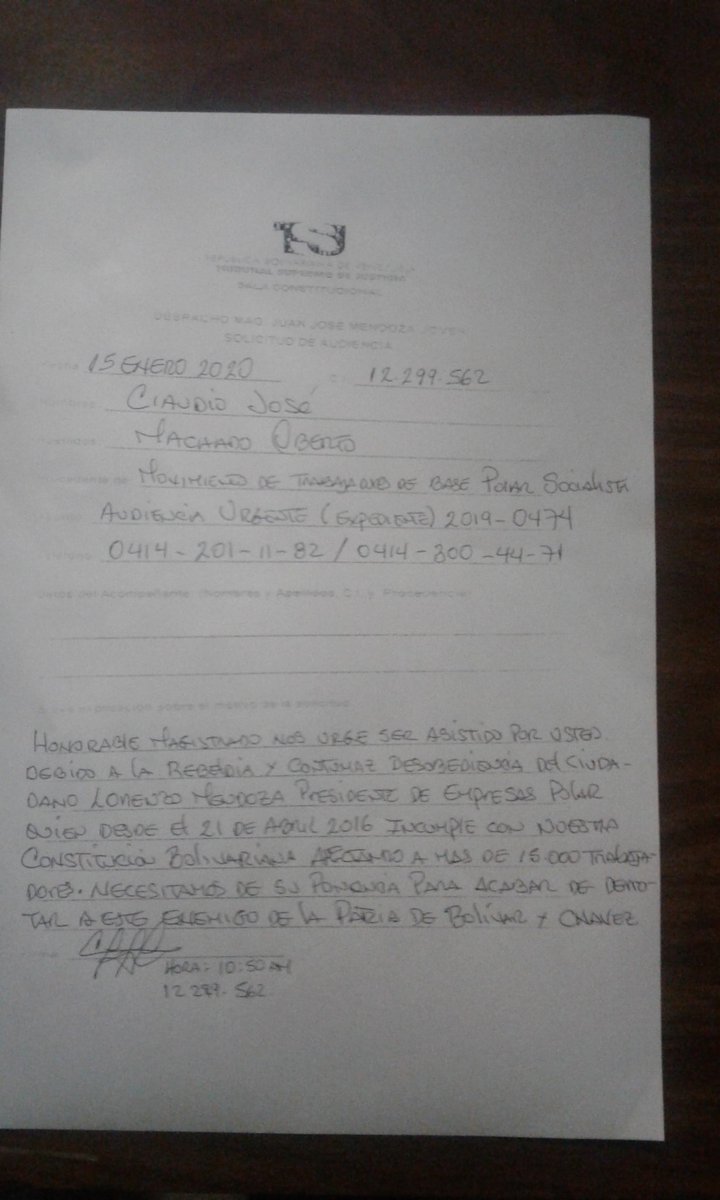 TSJ
REPÚBLICA BOLIVARIANA DE VENEZUELA
TRIBUNAL SUPREMO DE JUSTICIA
SALA CONSTITUCIONAL
DESPACHO MAG. JUAN JOSÉ MENDOZA JOVER
SOLICITUD DE AUDIENCIA
Fecha 15 ENERO 2020 12.299.562
Nombres: CLAUDIO JOSÉ
MACHADO OBERTO
MOVIMIENTO DE TRABAJADORES DE BASE POLAR SOCIALISTA
AUDIENCIA URGENTE (EXPEDIENTE) 2019-0474
0414-201-11-82 / 0414-300-44-71
Datos del Acompañante: (Nombres y Apellidos, C.I. y Procedencia)
Breve exposición sobre el motivo de la solicitud
HONORABLE MAGISTRADO NOS URGE SER ASISTIDO POR USTED
DEBIDO A LA REBELDIA Y CONTUMAZ DESOBEDIENCIA DEL CIUDA-
DANO LORENZO MENDOZA PRESIDENTE DE EMPRESAS POLAR
QUIEN DESDE EL 21 DE ABRIL 2016 INCUMPLE CON NUESTRA
CONSTITUCIÓN BOLIVARIANA AFECTANDO A MAS DE 15.000 TRABAJA-
DORES. NECESITAMOS DE SU PONENCIA PARA ACABAR DE DERRO-
TAR A ESTE ENEMIGO DE LA PATRIA DE BOLÍVAR Y CHAVEZ
HORA: 10:50 AM
12.299.562